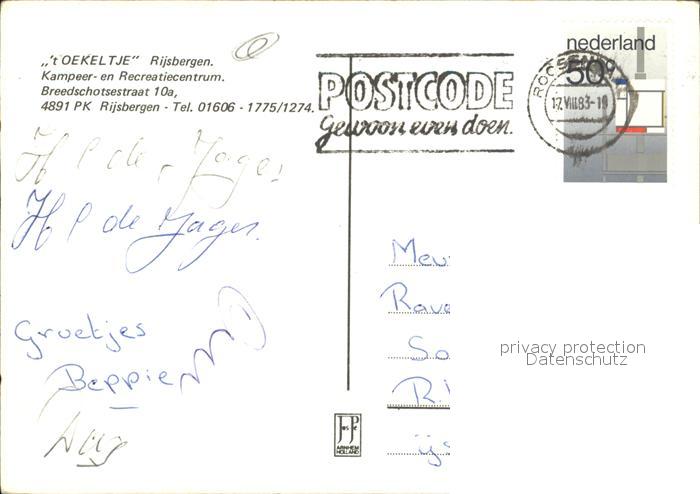 „'t OEKELTJE" Rijsbergen.
Kampeer- en Recreatiecentrum.
Breedschotsestraat 10a,
4891 PK Rijsbergen - Tel. 01606 - 1775/1274.
POSTCODE
Gewoon even doen.
nederland
50
17.VIII.83-19
H P de Jager
H P de Jager.
Groetjes
Beppie
Meu
Rave
So
R.
ijs
privacy protection
Datenschutz
JosPe
ARNHEM
HOLLAND